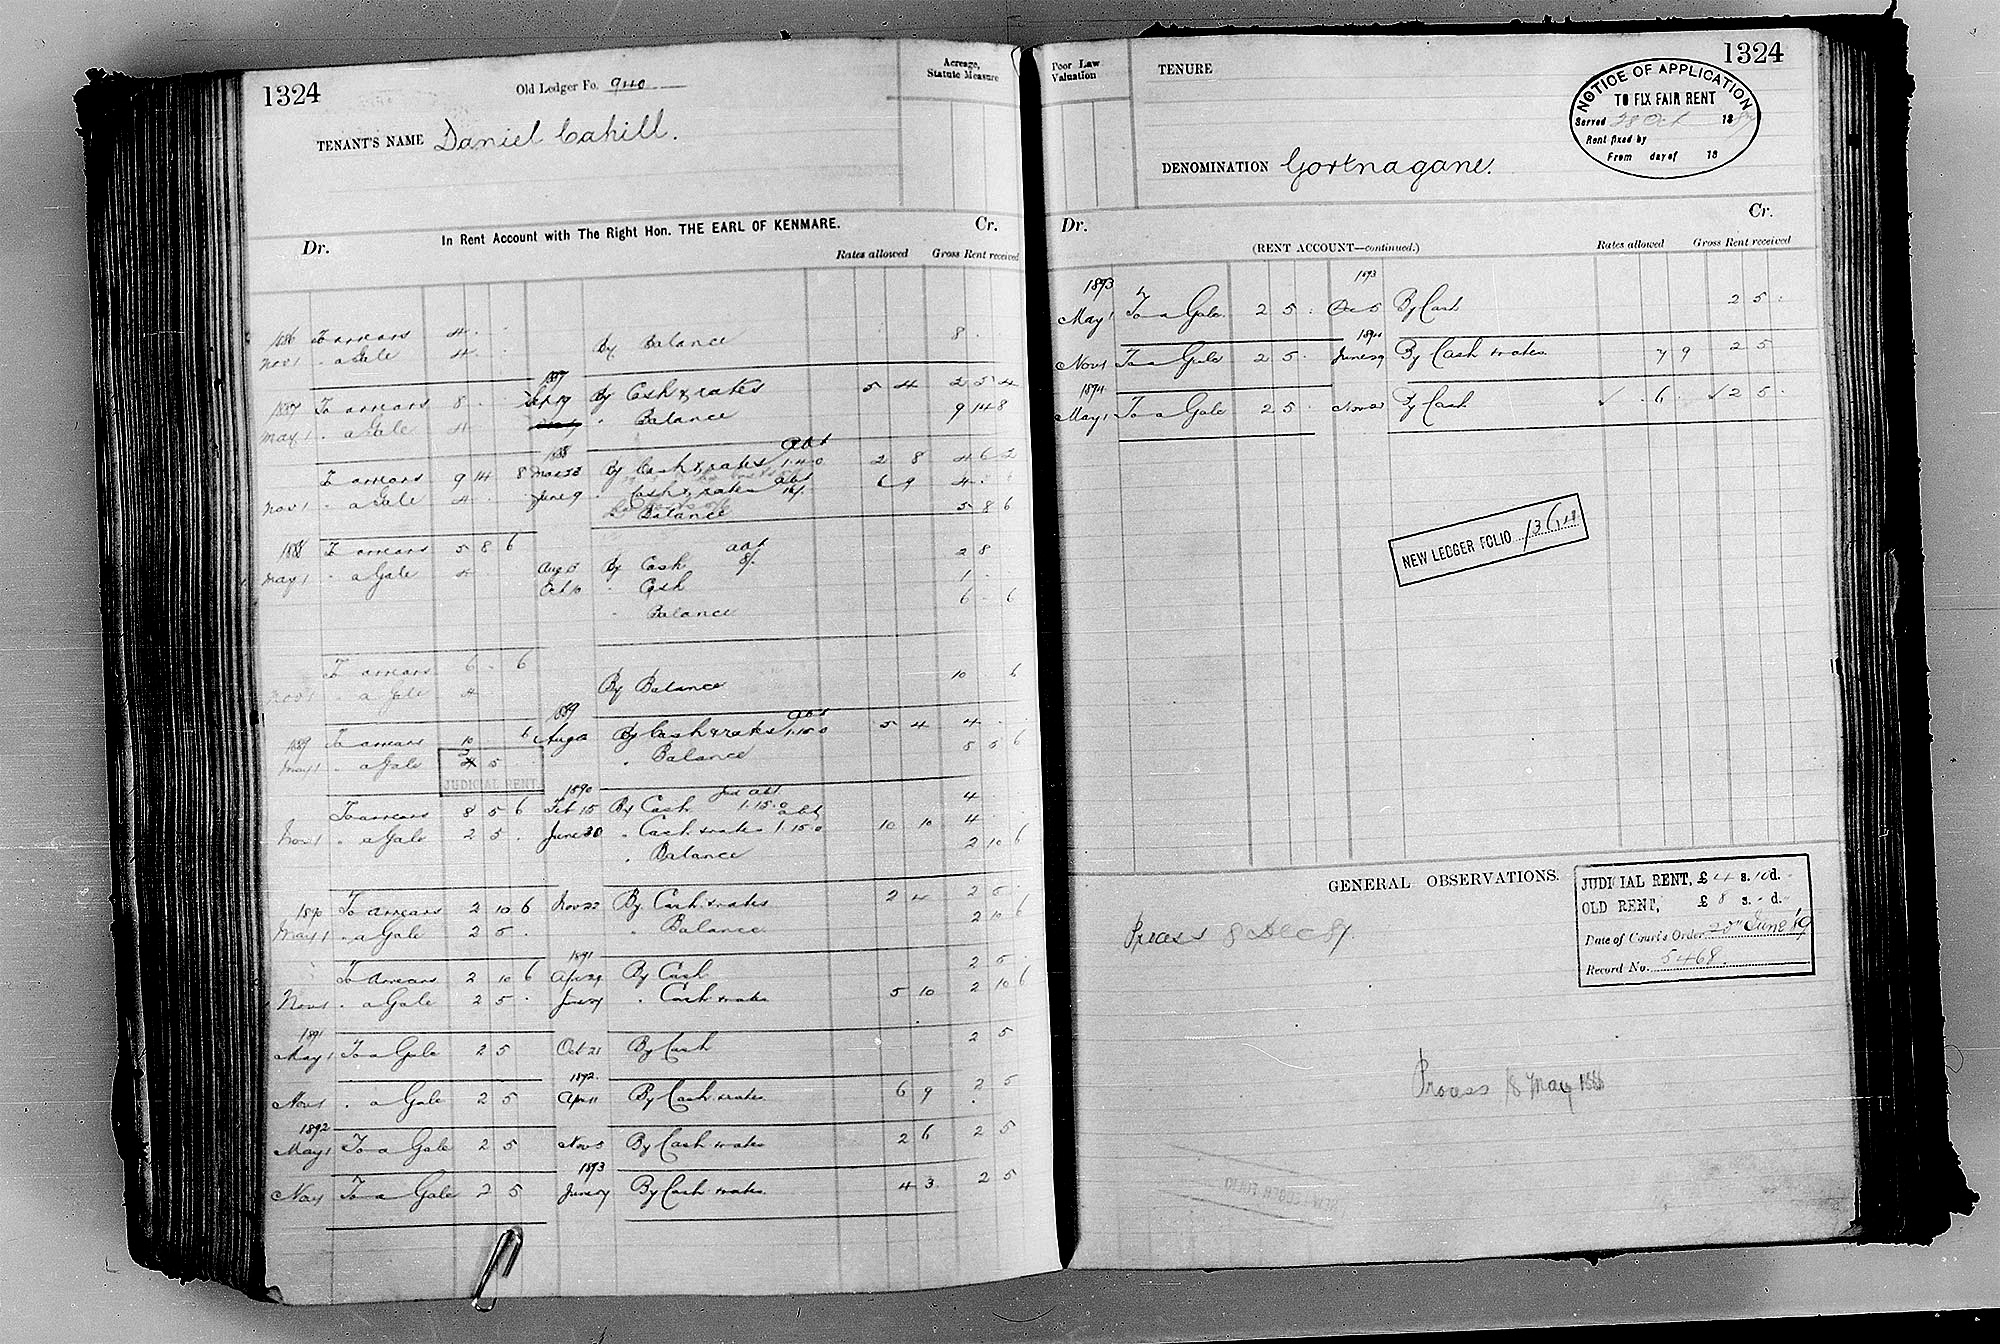 1324
Old Ledger Fo. 940
Acreage,
Statute Measure
TENANT'S NAME Daniel Cahill.
In Rent Account with The Right Hon. THE EARL OF KENMARE.
Dr.
Cr.
Rates allowed
Gross Rent received
1886 To arrears 4 . .
Nov 1 . a Gale 4 . . By Balance 8 .
1887
1887 To arrears 8 . . Sept 19 By Cash & rates 5 4 2 5 4
May 1 . a Gale 4 . . Balance 9 14 8
1888
To arrears 9 14 8 By Cash & rates abt 1.4.0 2 8 4 6 2
Nov 1 . a Gale 4 . June 9 . Cash & rates abt 6 9 4 .
Balance 5 8 6
1888 To arrears 5 8 6
May 1 . a Gale 4 . Aug 5 By Cash abt 8/. 2 8
Oct 10 . Cash 1 . .
. Balance 6 . 6
To arrears 6 . 6
Nov 1 . a Gale 4 By Balance 10 6
1889
1889 To arrears 10 6 Aug By Cash & rates abt 1.15.0 5 4 4 . .
May 1 . a Gale 2 5 . . Balance 8 5 6
JUDICIAL RENT
1890
To arrears 8 5 6 Feb 15 By Cash abt 1.15.0 4 .
Nov 1 . a Gale 2 5 . June 30 . Cash & rates abt 1.15.0 10 10 4 .
. Balance 2 10 6
1890 To arrears 2 10 6 Nov 22 By Cash & rates 2 4 2 5 .
May 1 . a Gale 2 5 . . Balance 2 10 6
1891
To arrears 2 10 6 Apr 29 By Cash 2 5 .
Nov 1 . a Gale 2 5 . . Cash & rates 5 10 2 10 6
1891
May 1 To a Gale 2 5 Oct 21 By Cash 2 5
1892.
Nov 1 . a Gale 2 5 Apr 11 By Cash & rates 6 9 2 5
1892
May 1 To a Gale 2 5 Nov 5 By Cash & rates 2 6 2 5
1893
Nov 1 To a Gale 2 5 By Cash & rates 4 3 2 5
Poor Law
Valuation
TENURE
1324
NOTICE OF APPLICATION
TO FIX FAIR RENT
Served 28 Oct 1887
Rent fixed by
From day of 18
DENOMINATION Gortnagane.
Dr.
Cr.
(RENT ACCOUNT—continued.)
Rates allowed
Gross Rent received
1893 1893
May 1 To a Gale 2 5 . Oct 5 By Cash 2 5 .
1894
Nov 1 To a Gale 2 5 . June 29 By Cash & rates 7 9 2 5
1894
May 1 To a Gale 2 5 . By Cash ✓ . 6 . ✓ 2 5 .
NEW LEDGER FOLIO
GENERAL OBSERVATIONS.
JUDICIAL RENT, £ 4 s. 10 d. -
OLD RENT, £ 8 s. - d. -
Date of Court's Order 20" June '89
Record No. 5468.
Process 8 Dec 87.
Process 18 May 1888
NEW LEDGER FOLIO